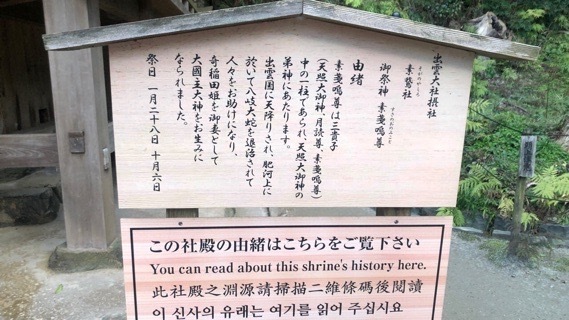 出雲大社摂社
素鵞社
そがのやしろ
御祭神 素戔嗚尊
すさのおのみこと
由緒
素戔嗚尊は三貴子
(天照大御神 月読尊 素戔嗚尊)
中の一柱であられ、天照大御神の
弟神にあたります。
出雲國に天降りされ、肥河上に
於いて八岐大蛇を退治されて
人々をお助けになり、
奇稲田姫を御妻として
大國主大神をお生みに
なられました。
祭日 一月二十八日 十月六日
この社殿の由緒はこちらをご覧下さい
You can read about this shrine's history here.
此社殿之淵源請掃描二維條碼後閱讀
이 신사의 유래는 여기를 읽어 주십시요